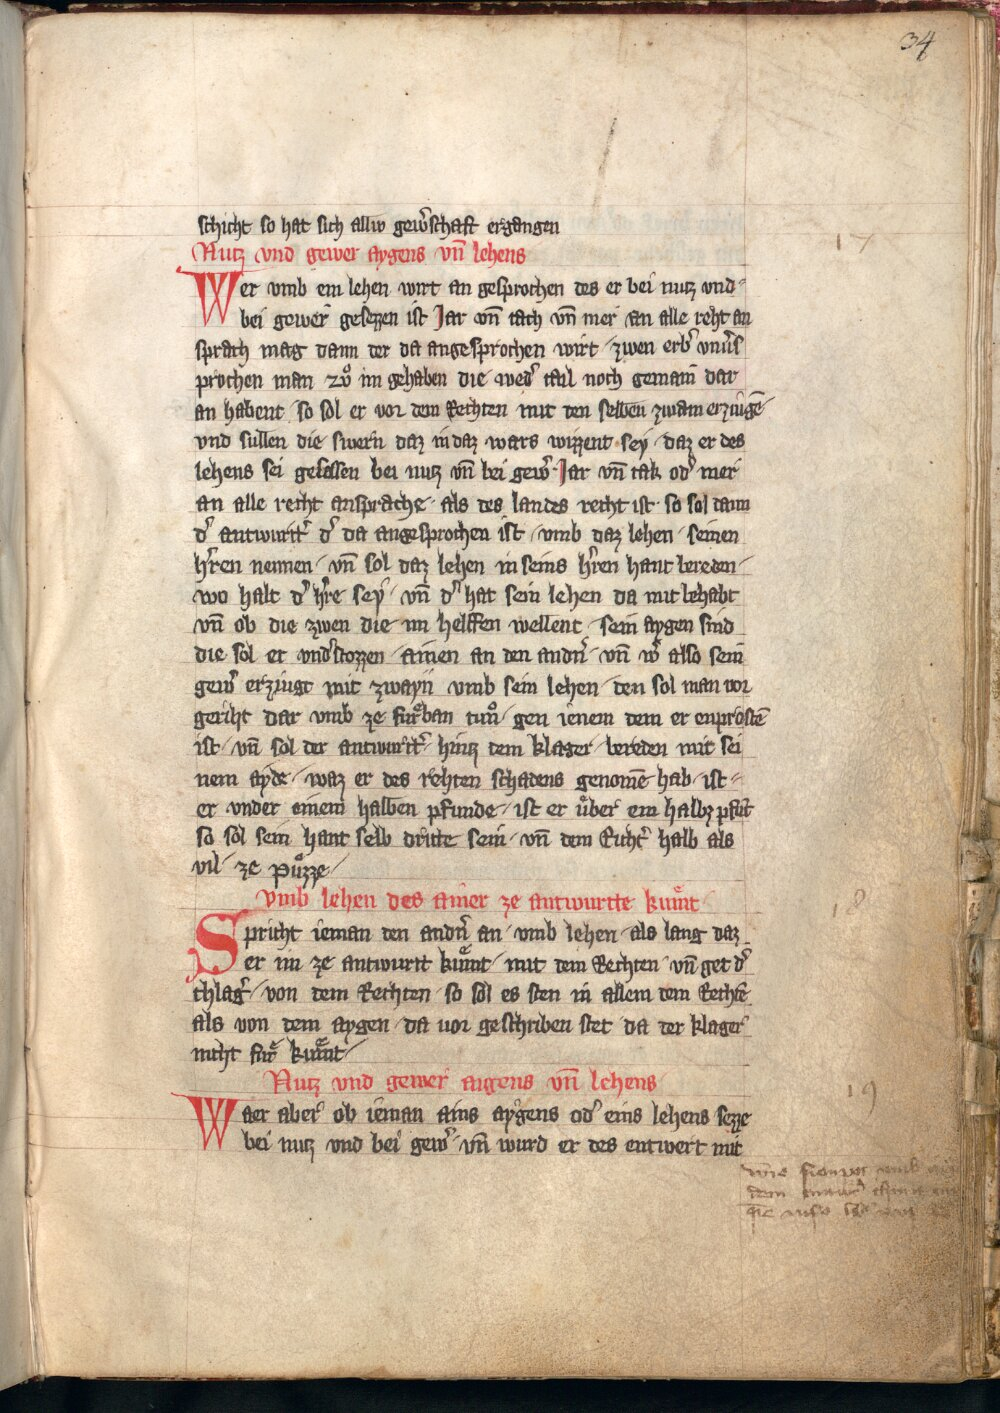 34
schicht so hat sich alliv gew̓schaft ergangen
Nutz vnd gewer aygens vn̄ lehens
17
Wer vmb ein lehen wirt an gesprochen des er bei nutz vnd
bei gewer gesezzen ist Jar vn̄ tach vn̄ mer an alle reht an
sprach mag dann der da angesprochen wirt zwen erb̓ vnu̓s
prochen man zvͦ im gehaben die wed̓ tail noch gemain dar
an habent so sol er vor dem Rechten mit den selben zwain erziugē
vnd sullen die swern daz in daz wars wizzent sey daz er des
lehens sei gesessen bei nutz vn̄ bei gew̓ Jar vn̄ tak od̓ mer
an alle recht ansprache als des landes recht ist so sol dann
d̓ antwurtt̓ d̓ da angesprochen ist vmb daz lehen seinen
h̓ren nennen vn̄ sol daz lehen in seins h̓ren hant bereden
wo halt d̓ h̓re sey vn̄ d̓ hat sein lehen da mit behabt
vn̄ ob die zwen die im helffen wellent sein aygen sind
die sol er vnd̓stozzen ainen an den andn̓ vn̄ w̓ also sein
gew̓ erziugt mit zwayn vmb sein lehen den sol man vor
geriht dar vmb ze fuͤrban tun gen ienem dem er enprostē
ist vn̄ sol der antwurtt̓ hintz dem klager bereden mit sei
nem ayde waz er des rehten schadens genomē hab ist
er vnder einem halben pfunde ist er uͤber ein halbz pfūt
so sol sein hant selb dritte sein vn̄ dem Riht̓ halb als
vil ze puͦzze
vmb lehen des ainer ze antwurtte kumͤt
18
Spricht ieman den andn̓ an vmb lehen als lang daz
er im ze antwurtt kumͤt mit dem Rechten vn̄ get d̓
chlag̓ von dem Rechten so sol es sten in allem dem Rechtē
als von dem aygen da uor geschriben stet da der klager
nicht fuͤr kumͤt
Nutz vnd gewer aigens vn̄ lehens
19
Waer aber ob ieman ains aygens od̓ eins lehens sezze
bei nutz vnd bei gew̓ vn̄ wurd er des entwert mit